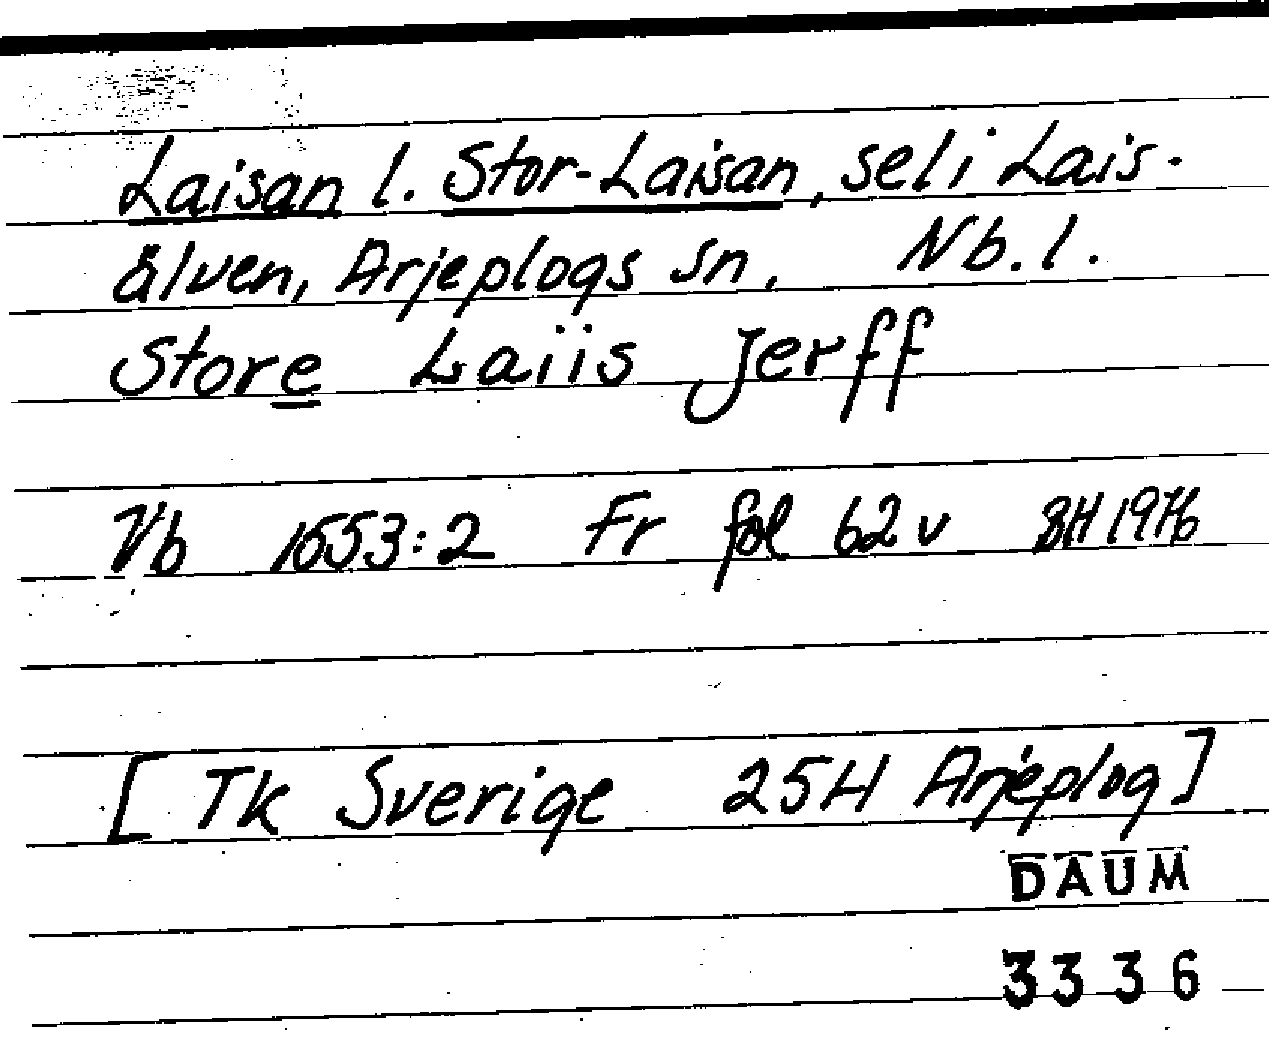 Laisan l. Stor-Laisan, sel i Lais-
älven, Arjeplogs sn, Nb. l.
Store Laiis Jerff
Vb 1553:2 Fr fol 62 v BH 1976
[Tk Sverige 25H Arjeplog]
DAUM
3336